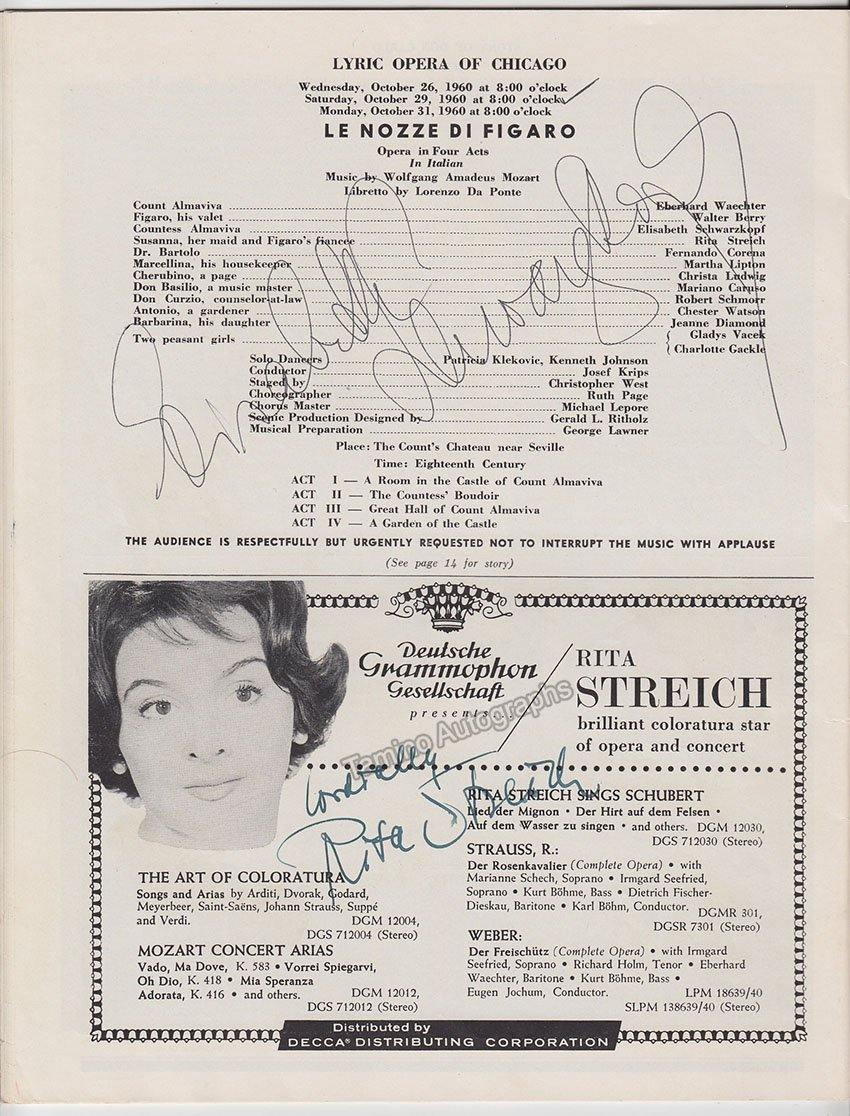 LYRIC OPERA OF CHICAGO
Wednesday, October 26, 1960 at 8:00 o'clock
Saturday, October 29, 1960 at 8:00 o'clock
Monday, October 31, 1960 at 8:00 o'clock
LE NOZZE DI FIGARO
Opera in Four Acts
In Italian
Music by Wolfgang Amadeus Mozart
Libretto by Lorenzo Da Ponte
Count Almaviva Eberhard Waechter
Figaro, his valet Walter Berry
Countess Almaviva Elisabeth Schwarzkopf
Susanna, her maid and Figaro's fiancée Rita Streich
Dr. Bartolo Fernando Corena
Marcellina, his housekeeper Martha Lipton
Cherubino, a page Christa Ludwig
Don Basilio, a music master Mariano Caruso
Don Curzio, counselor-at-law Robert Schmorr
Antonio, a gardener Chester Watson
Barbarina, his daughter Jeanne Diamond
Two peasant girls { Gladys Vacek
{ Charlotte Gackle
Elisabeth Schwarzkopf
Solo Dancers Patricia Klekovic, Kenneth Johnson
Conductor Josef Krips
Staged by Christopher West
Choreographer Ruth Page
Chorus Master Michael Lepore
Scenic Production Designed by Gerald L. Ritholz
Musical Preparation George Lawner
Place: The Count's Chateau near Seville
Time: Eighteenth Century
ACT I — A Room in the Castle of Count Almaviva
ACT II — The Countess' Boudoir
ACT III — Great Hall of Count Almaviva
ACT IV — A Garden of the Castle
THE AUDIENCE IS RESPECTFULLY BUT URGENTLY REQUESTED NOT TO INTERRUPT THE MUSIC WITH APPLAUSE
(See page 14 for story)
Deutsche
Grammophon
Gesellschaft
presents...
RITA
STREICH
brilliant coloratura star
of opera and concert
Tamino Autographs
Cordially
Rita Streich
THE ART OF COLORATURA
Songs and Arias by Arditi, Dvorak, Godard,
Meyerbeer, Saint-Saëns, Johann Strauss, Suppé
and Verdi. DGM 12004,
DGS 712004 (Stereo)
MOZART CONCERT ARIAS
Vado, Ma Dove, K. 583 • Vorrei Spiegarvi,
Oh Dio, K. 418 • Mia Speranza
Adorata, K. 416 • and others. DGM 12012,
DGS 712012 (Stereo)
RITA STREICH SINGS SCHUBERT
Lied der Mignon • Der Hirt auf dem Felsen •
Auf dem Wasser zu singen • and others. DGM 12030,
DGS 712030 (Stereo)
STRAUSS, R.:
Der Rosenkavalier (Complete Opera) • with
Marianne Schech, Soprano • Irmgard Seefried,
Soprano • Kurt Böhme, Bass • Dietrich Fischer-
Dieskau, Baritone • Karl Böhm, Conductor. DGMR 301,
DGSR 7301 (Stereo)
WEBER:
Der Freischütz (Complete Opera) • with Irmgard
Seefried, Soprano • Richard Holm, Tenor • Eberhard
Waechter, Baritone • Kurt Böhme, Bass •
Eugen Jochum, Conductor. LPM 18639/40
SLPM 138639/40 (Stereo)
Distributed by
DECCA® DISTRIBUTING CORPORATION